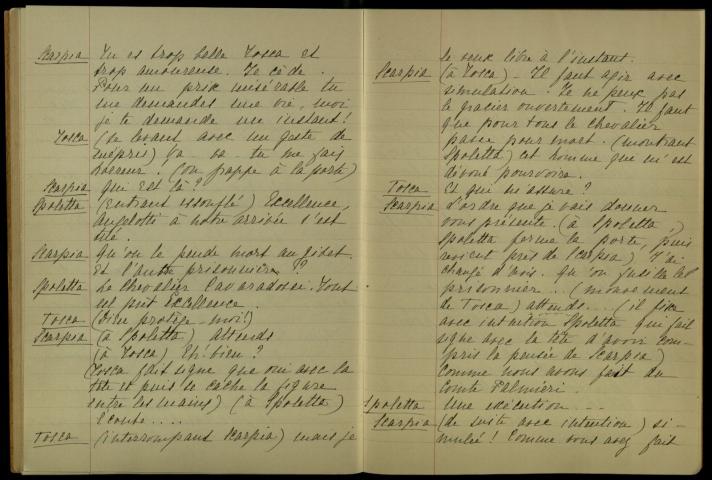 Scarpia Tu es trop belle Tosca et
trop amoureuse. Je cède.
Pour un prix misérable tu
me demandes une vie, moi
je te demande un instant!
Tosca (se levant avec un geste de
mépris) Va va - tu me fais
horreur. (on frappe à la porte)
Scarpia Qui est là?
Spoletta (entrant essouflé) Excellence,
Angelotti à notre arrivée s'est
tué.
Scarpia Qu'on le pende mort au gibet.
Et l'autre prisonnier?
Spoletta Le chevalier Cavaradossi. Tout
est prêt Excellence.
Tosca (Dieu protège-moi!)
Scarpia (à Spoletta) Attends
(à Tosca) Eh! bien?
(Tosca fait signe que oui avec la
tête et puis se cache la figure
entre les mains) (à Spoletta)
Ecoute....
Tosca (interrompant Scarpia) mais je
le veux libre à l'instant.
Scarpia (à Tosca) - Il faut agir avec
simulation. Je ne peux pas
le gracier ouvertement. Il faut
que pour tous le chevalier
passe pour mort. (montrant
Spoletta) cet homme que m'est
dévoué pourvoira.
Tosca Et qui m'assure?
Scarpia L'ordre que je vais donner
vous présente. (à Spoletta)
Spoletta ferme la porte, puis
revient près de Scarpia) J'ai
changé d'avis. Qu'on fusille le
prisonnier... (mouvement
de Tosca) attends... (il fixe
avec intention Spoletta qui fait
signe avec la tête d'avoir com-
pris la pensée de Scarpia)
Comme nous avons fait du
Comte Palmieri.
Spoletta Une exécution...
Scarpia (de suite avec intention) si-
mulée! Comme vous avez fait